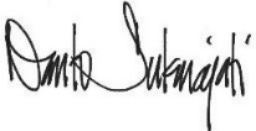 Danto Sukmajati